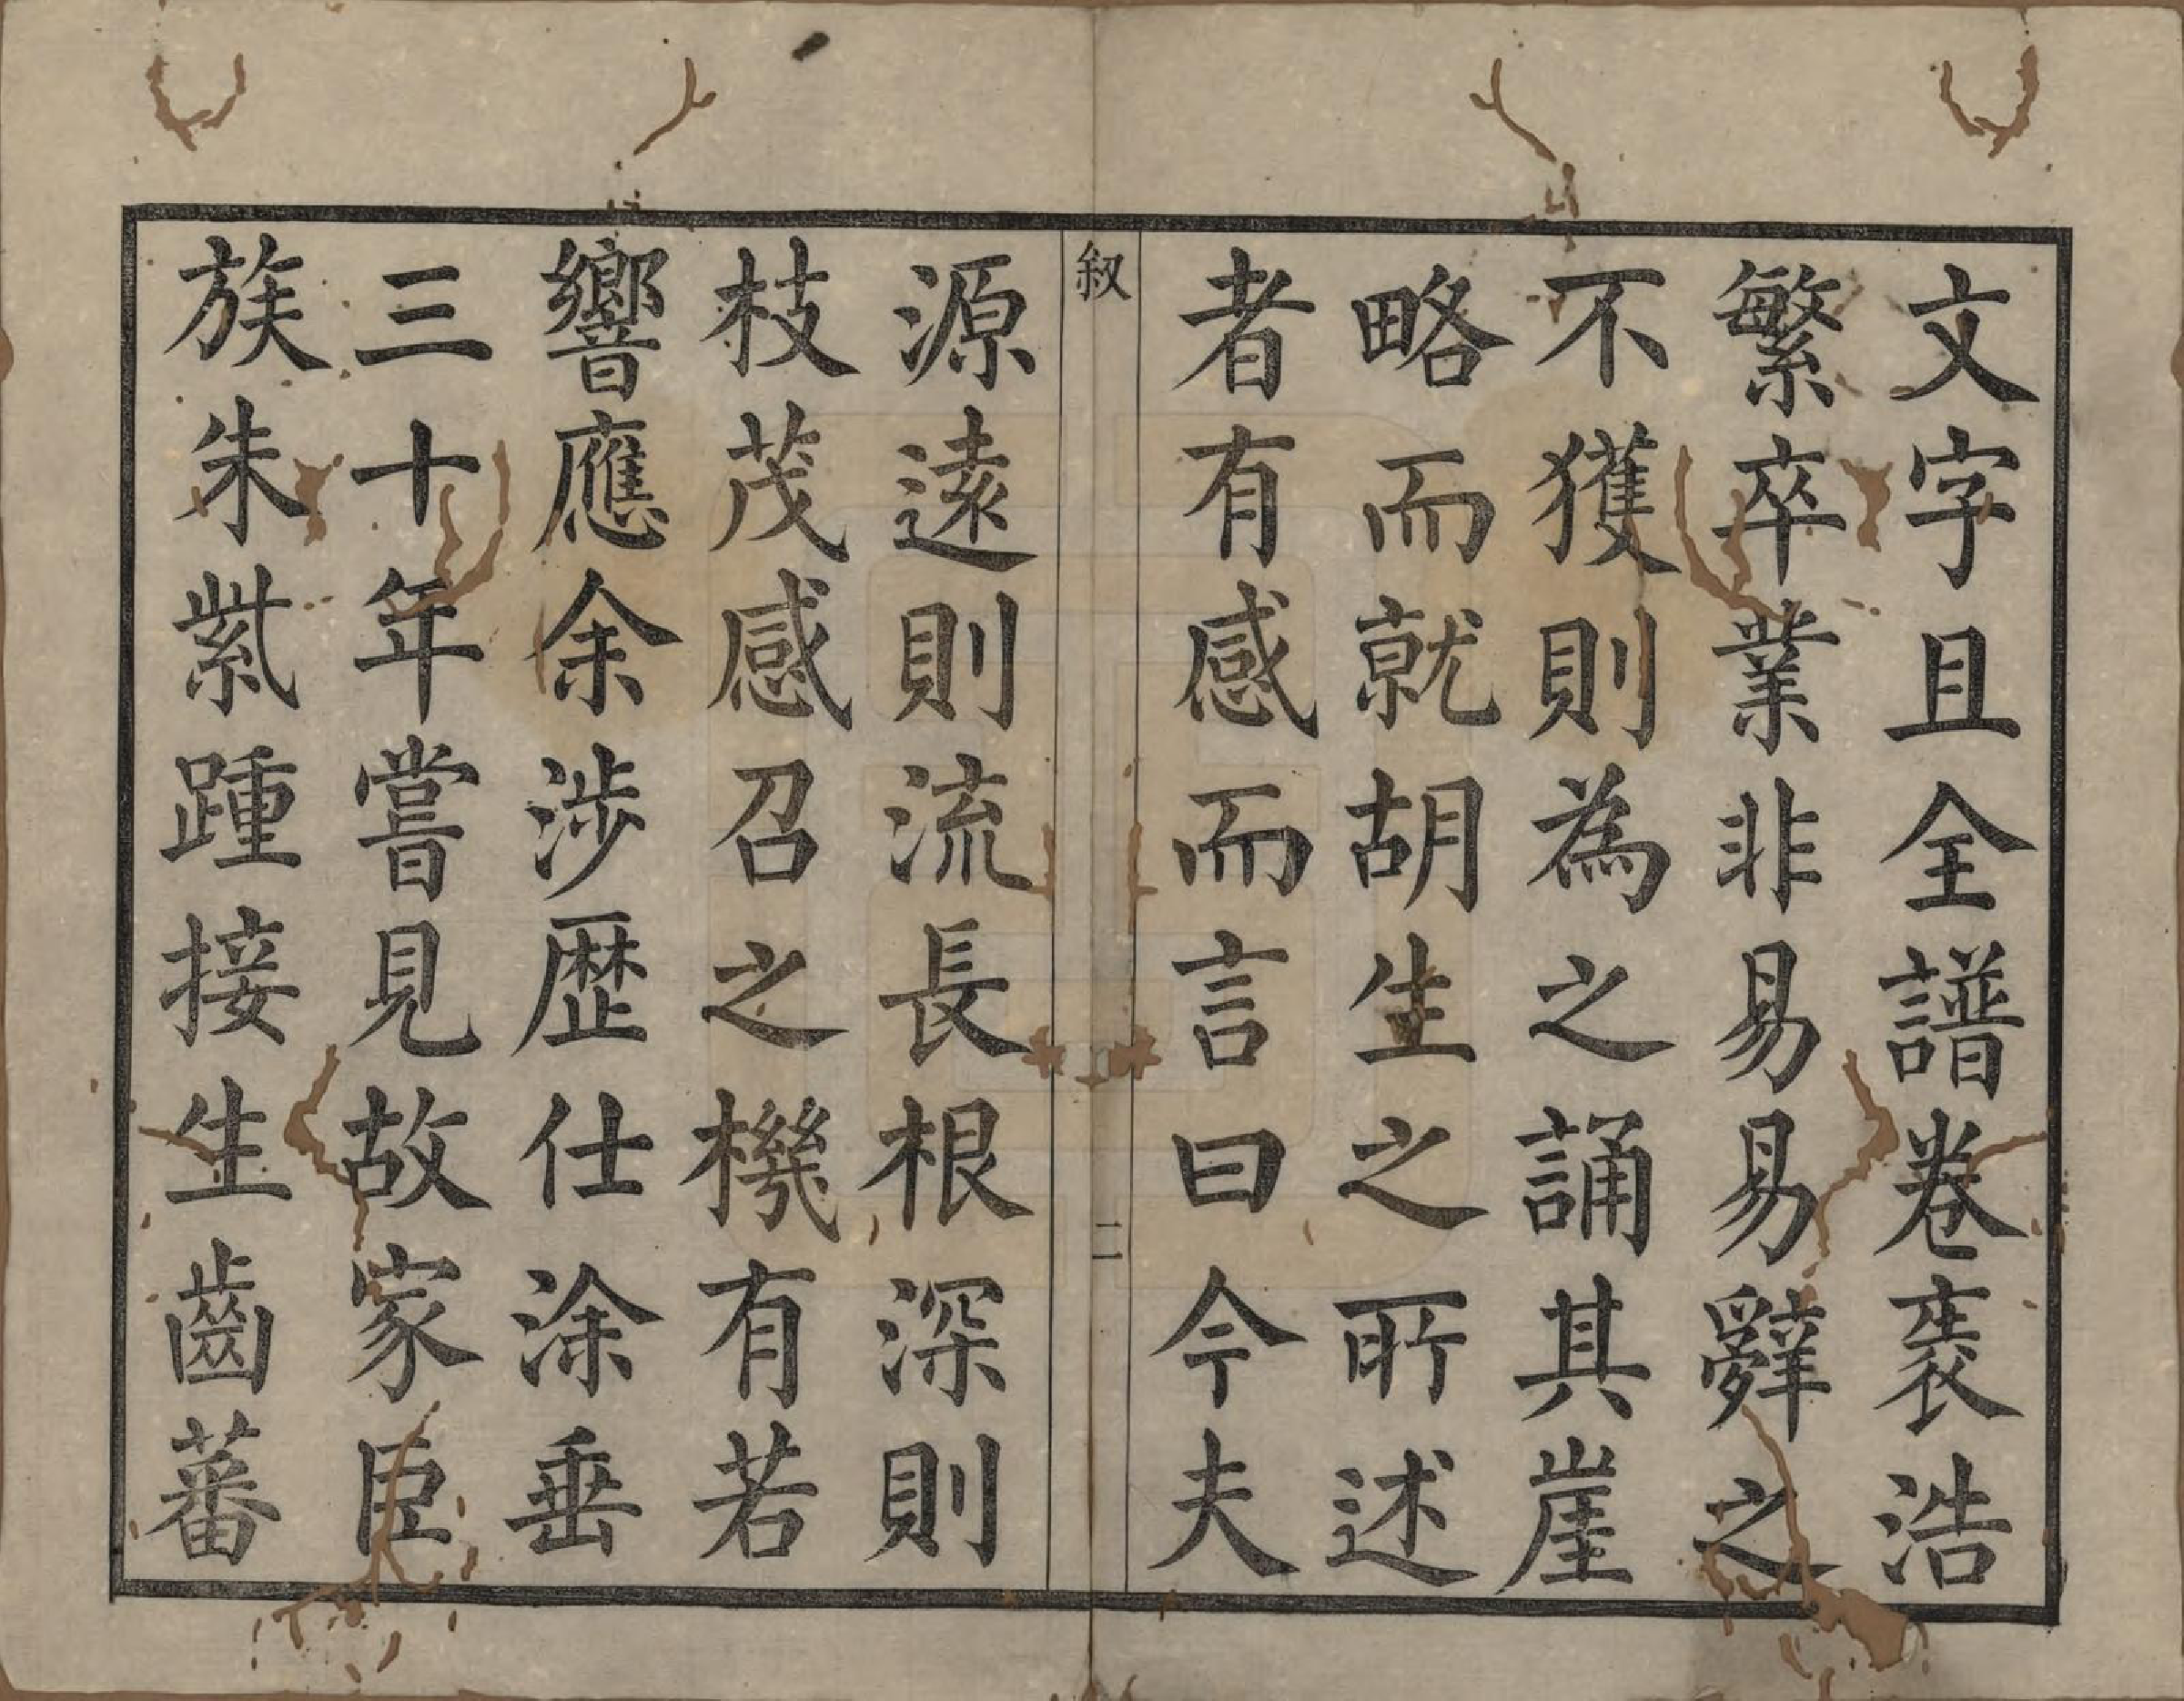 文字且全譜卷袠浩
繁卒業非易易辭之
不獲則為之誦其崖
略而就胡生之所述
者有感而言曰今夫
叙
二
源遠則流長根深則
枝茂感召之機有若
響應余涉歷仕涂垂
三十年嘗見故家臣
族朱紫踵接生齒蕃